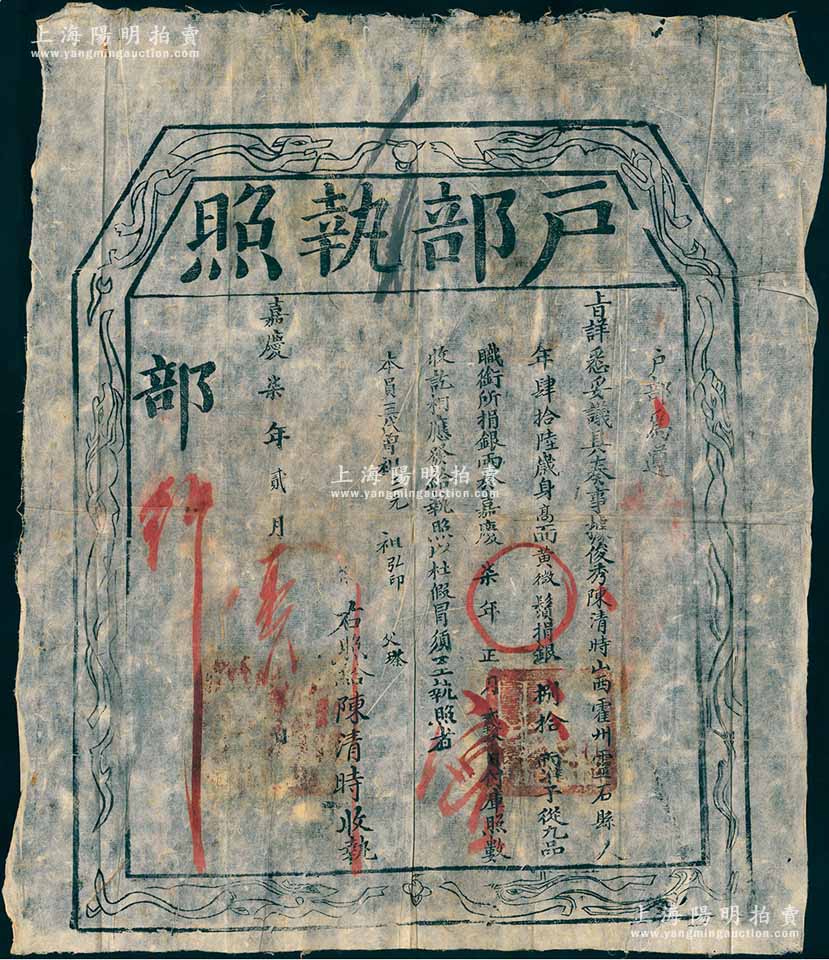 上海陽明拍賣
www.yangmingauction.com
上海陽明拍賣
www.yangmingauction.com
户部執照
户部為遵
旨詳悉妥議具奏事據俊秀陳清時山西霍州靈石縣人
年肆拾陸歲身高面黃微鬚捐銀捌拾兩準予從九品
職銜所捐銀兩於嘉慶柒年正月 日付庫照數
收訖相應發給執照以杜假冒須至執照者
本員三代曾祖 元 祖弘印 父琛
右照給陳清時收執
嘉慶柒年貳月 日
部
行
上海陽明拍賣
www.yangmingauction.com
上海陽明拍賣
www.yangmingauction.com